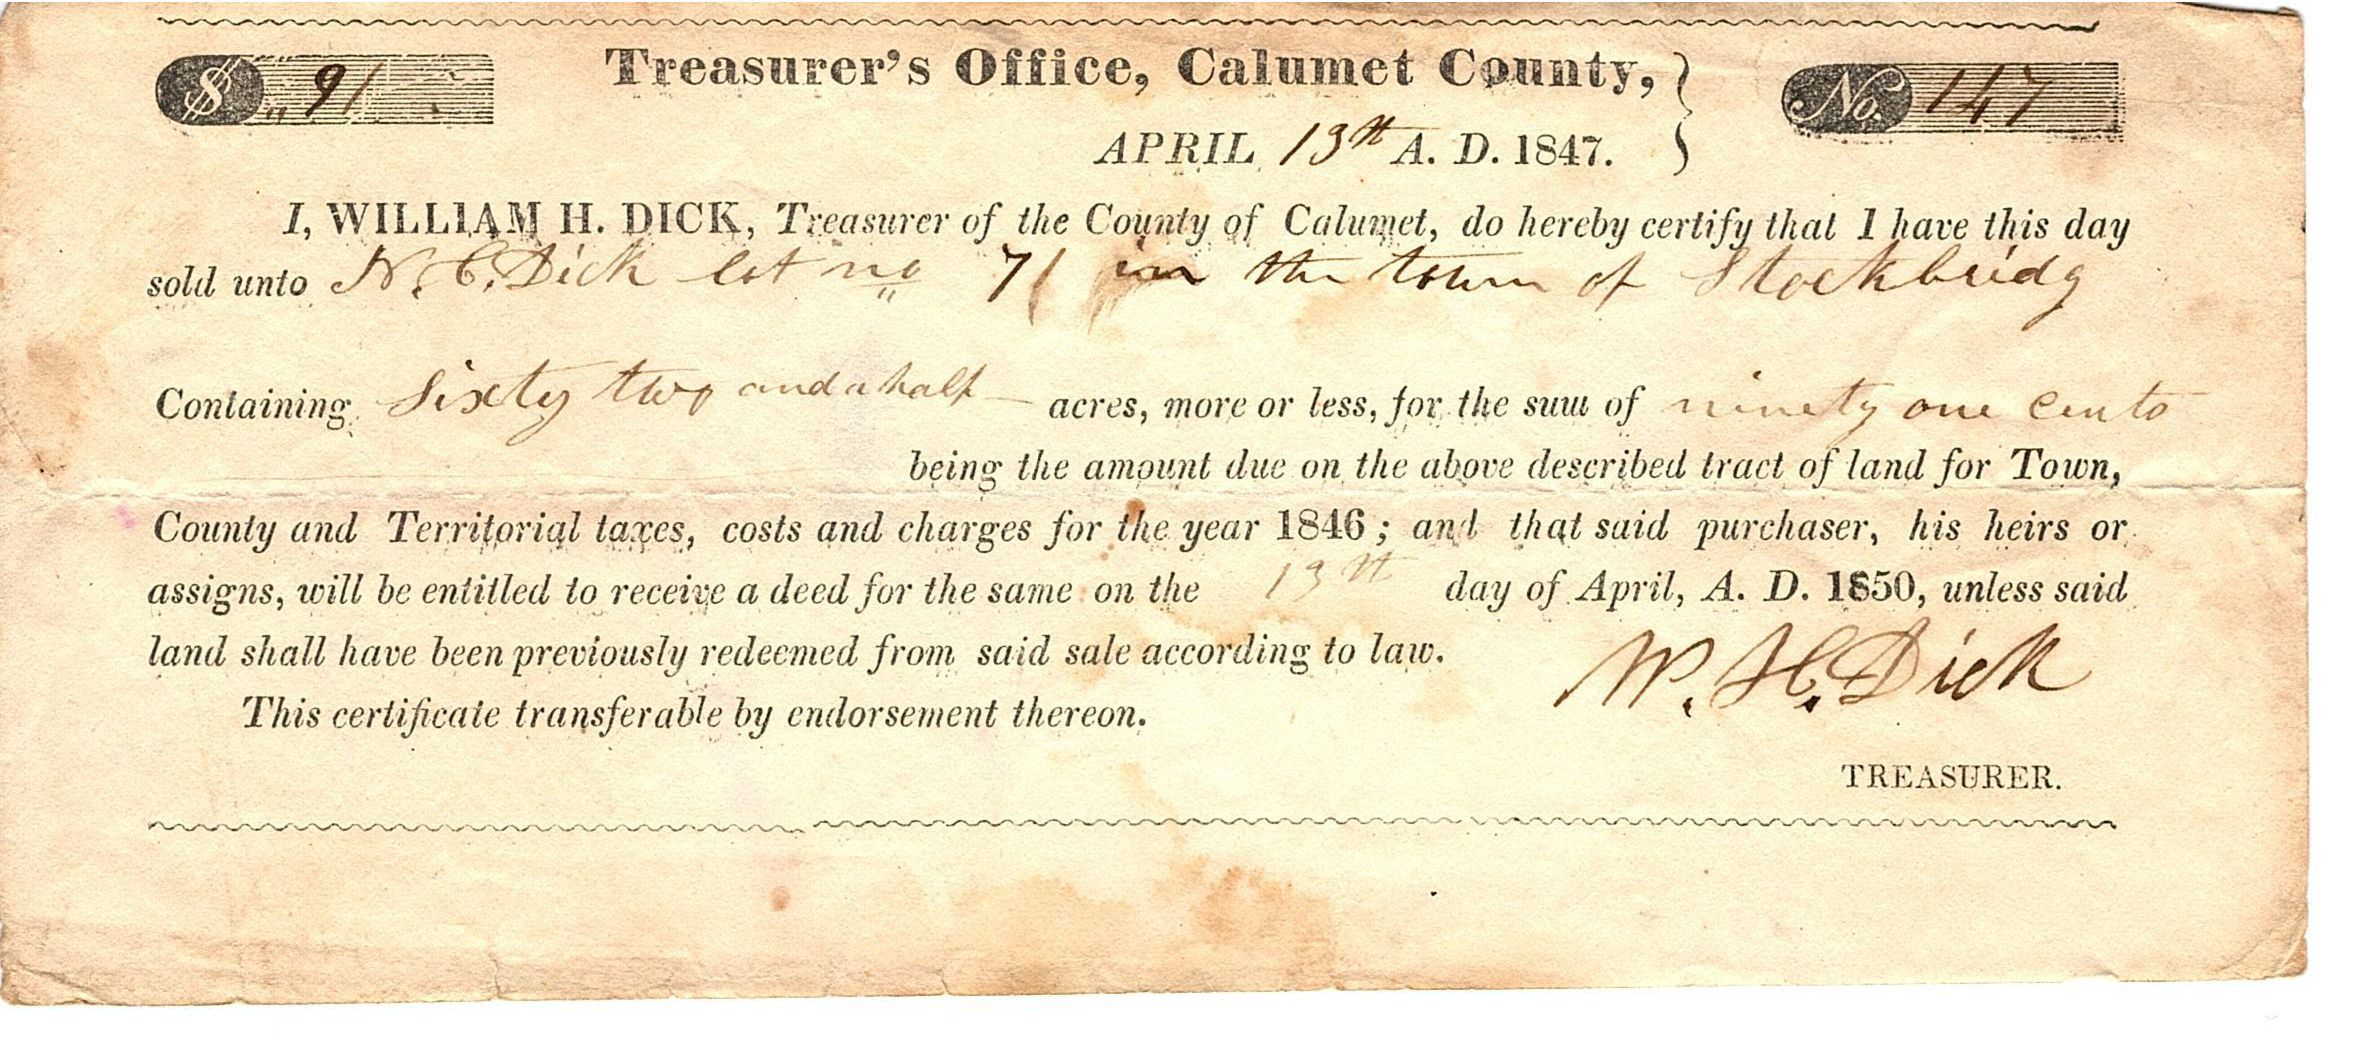 $ " 91
Treasurer's Office, Calumet County,
No. 147
APRIL 13th A. D. 1847.
I, WILLIAM H. DICK, Treasurer of the County of Calumet, do hereby certify that I have this day
sold unto N. C. Dick lot no 71 in the town of Stockbridg
Containing sixty two and a half acres, more or less, for the sum of ninety one cents
being the amount due on the above described tract of land for Town,
County and Territorial taxes, costs and charges for the year 1846; and that said purchaser, his heirs or
assigns, will be entitled to receive a deed for the same on the 13th day of April, A. D. 1850, unless said
land shall have been previously redeemed from said sale according to law.
This certificate transferable by endorsement thereon.
W. H. Dick
TREASURER.